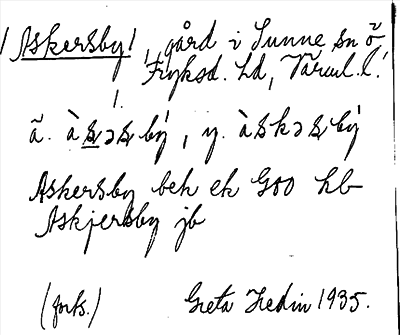 Askersby, gård i Sunne sn ö,
Fryksd. hd, Värml. l.
ä. , y.
Askersby beh ek Goo hb
Askjersby jb
(forts.) Greta Hedin 1935.